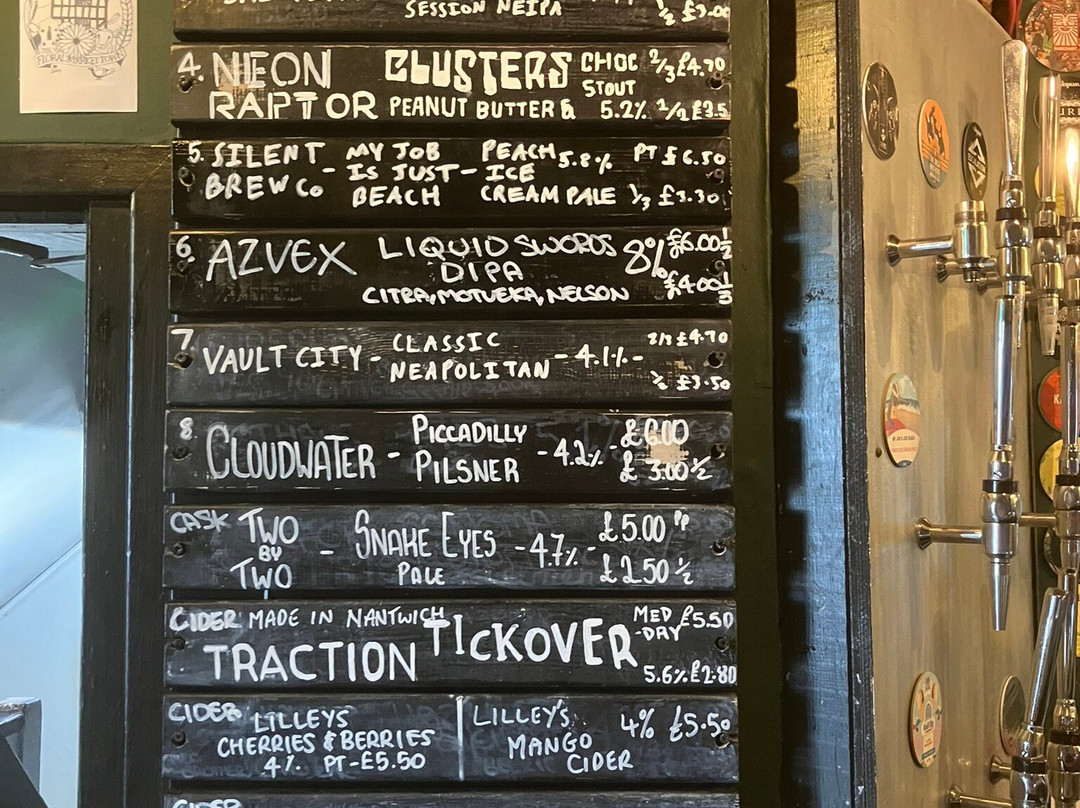 SESSION NEIPA ½ £3.00
4. NEON CLUSTERS CHOC 2/3 £4.70
STOUT
RAPTOR PEANUT BUTTER & 5.2% 1/2 £3.5
5. SILENT MY JOB PEACH 5.8% PT £6.50
- IS JUST - ICE
BREW Co BEACH CREAM PALE 1/3 £3.30
6. AZVEX LIQUID SWORDS 8% £6.00 ½
DIPA
£4.00 1/3
CITRA, MOTUEKA, NELSON
7. VAULT CITY - CLASSIC - 4.1% - 2/3 £4.70
NEAPOLITAN ½ £3.50
8. CLOUDWATER - PICCADILLY - 4.2% £6.00
PILSNER £3.00 ½
CASK TWO - SNAKE EYES - 4.7% - £5.00
BY
TWO PALE £2.50 ½
CIDER MADE IN NANTWICH MED £5.50
-DRY
TRACTION TICKOVER 5.6% £2.80
CIDER LILLEYS LILLEY'S 4% £5.50
CHERRIES & BERRIES MANGO
4% PT-£5.50 CIDER
CIDER
FLORAL MARKET TOWN